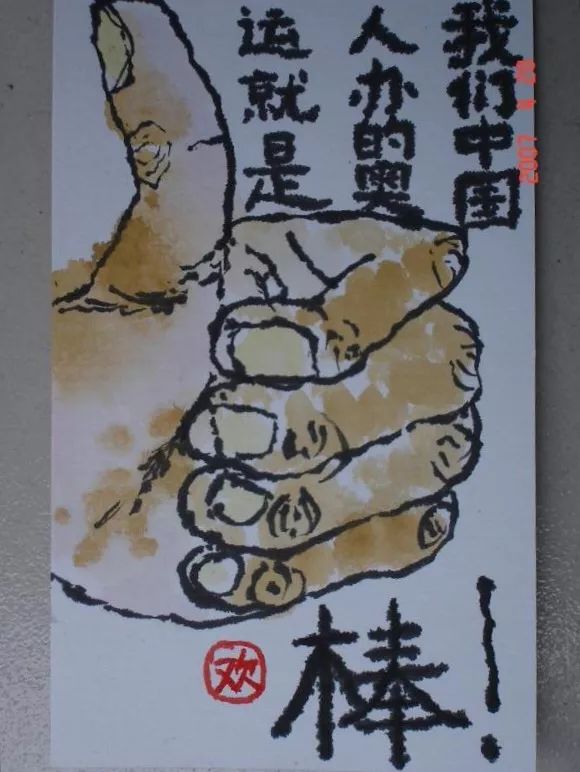 我们中国
人办的奥
运就是
棒！
欢